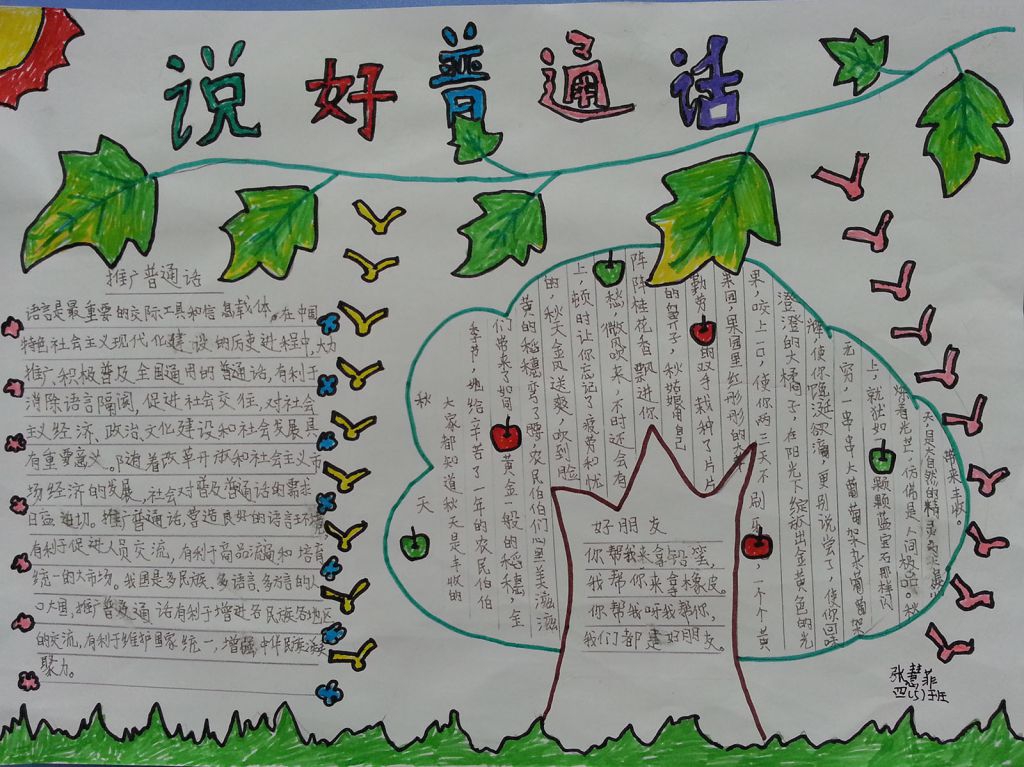 说好普通话
推广普通话
语言是最重要的交际工具和信息载体。在中国
特色社会主义现代化建设的历史进程中,大力
推广、积极普及全国通用的普通话,有利于
消除语言隔阂,促进社会交往,对社会
主义经济、政治、文化建设和社会发展具
有重要意义。随着改革开放和社会主义市
场经济的发展,社会对普及普通话的需求
日益迫切。推广普通话,营造良好的语言环境,
有利于促进人员交流,有利于商品流通和培育
统一的大市场。我国是多民族、多语言、多方言的人
口大国,推广普通话有利于增进各民族各地区
的交流,有利于维护国家统一,增强中华民族凝
聚力。
秋天
大家都知道秋天是丰收的
季节,她给辛苦了一年的农民伯伯
们带来了如同黄金一般的稻穗,金
黄的稻穗弯了腰,农民伯伯们心里美滋滋
的,秋天金风送爽,吹到脸
上,顿时让你忘记了疲劳和忧
愁,微风吹来,不时还会有
阵阵桂花香飘进你
的鼻子,秋姑娘用自己
勤劳的双手,栽种了片片
果园,果园里红彤彤的
果,咬上一口,使你两三天不刷牙,一个个黄
澄澄的大橘子,在阳光下绽放出金黄色的光
辉,使你馋涎欲滴,更别说尝了,使你回味
无穷,一串串大葡萄 葡萄架
上,就犹如一颗颗蓝宝石那样闪
烁着光芒,仿佛是人间极品。秋
天,是大自然的精灵
带来丰收。
好朋友
你帮我来拿铅笔,
我帮你来拿橡皮。
你帮我呀我帮你,
我们都是好朋友。
张慧菲
四(5)班